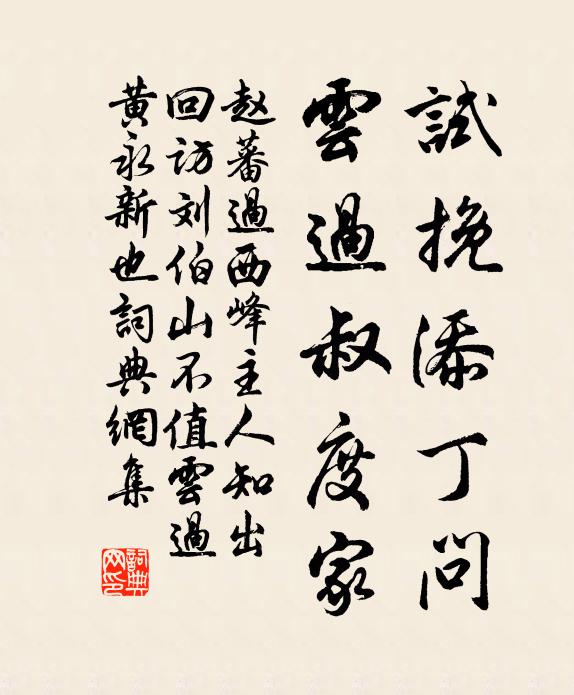 試挽添丁問
雲過叔度家
赵蕃過西峰主人知出
回访刘伯山不值雲過
黃永新也詞典網集
詞典网印